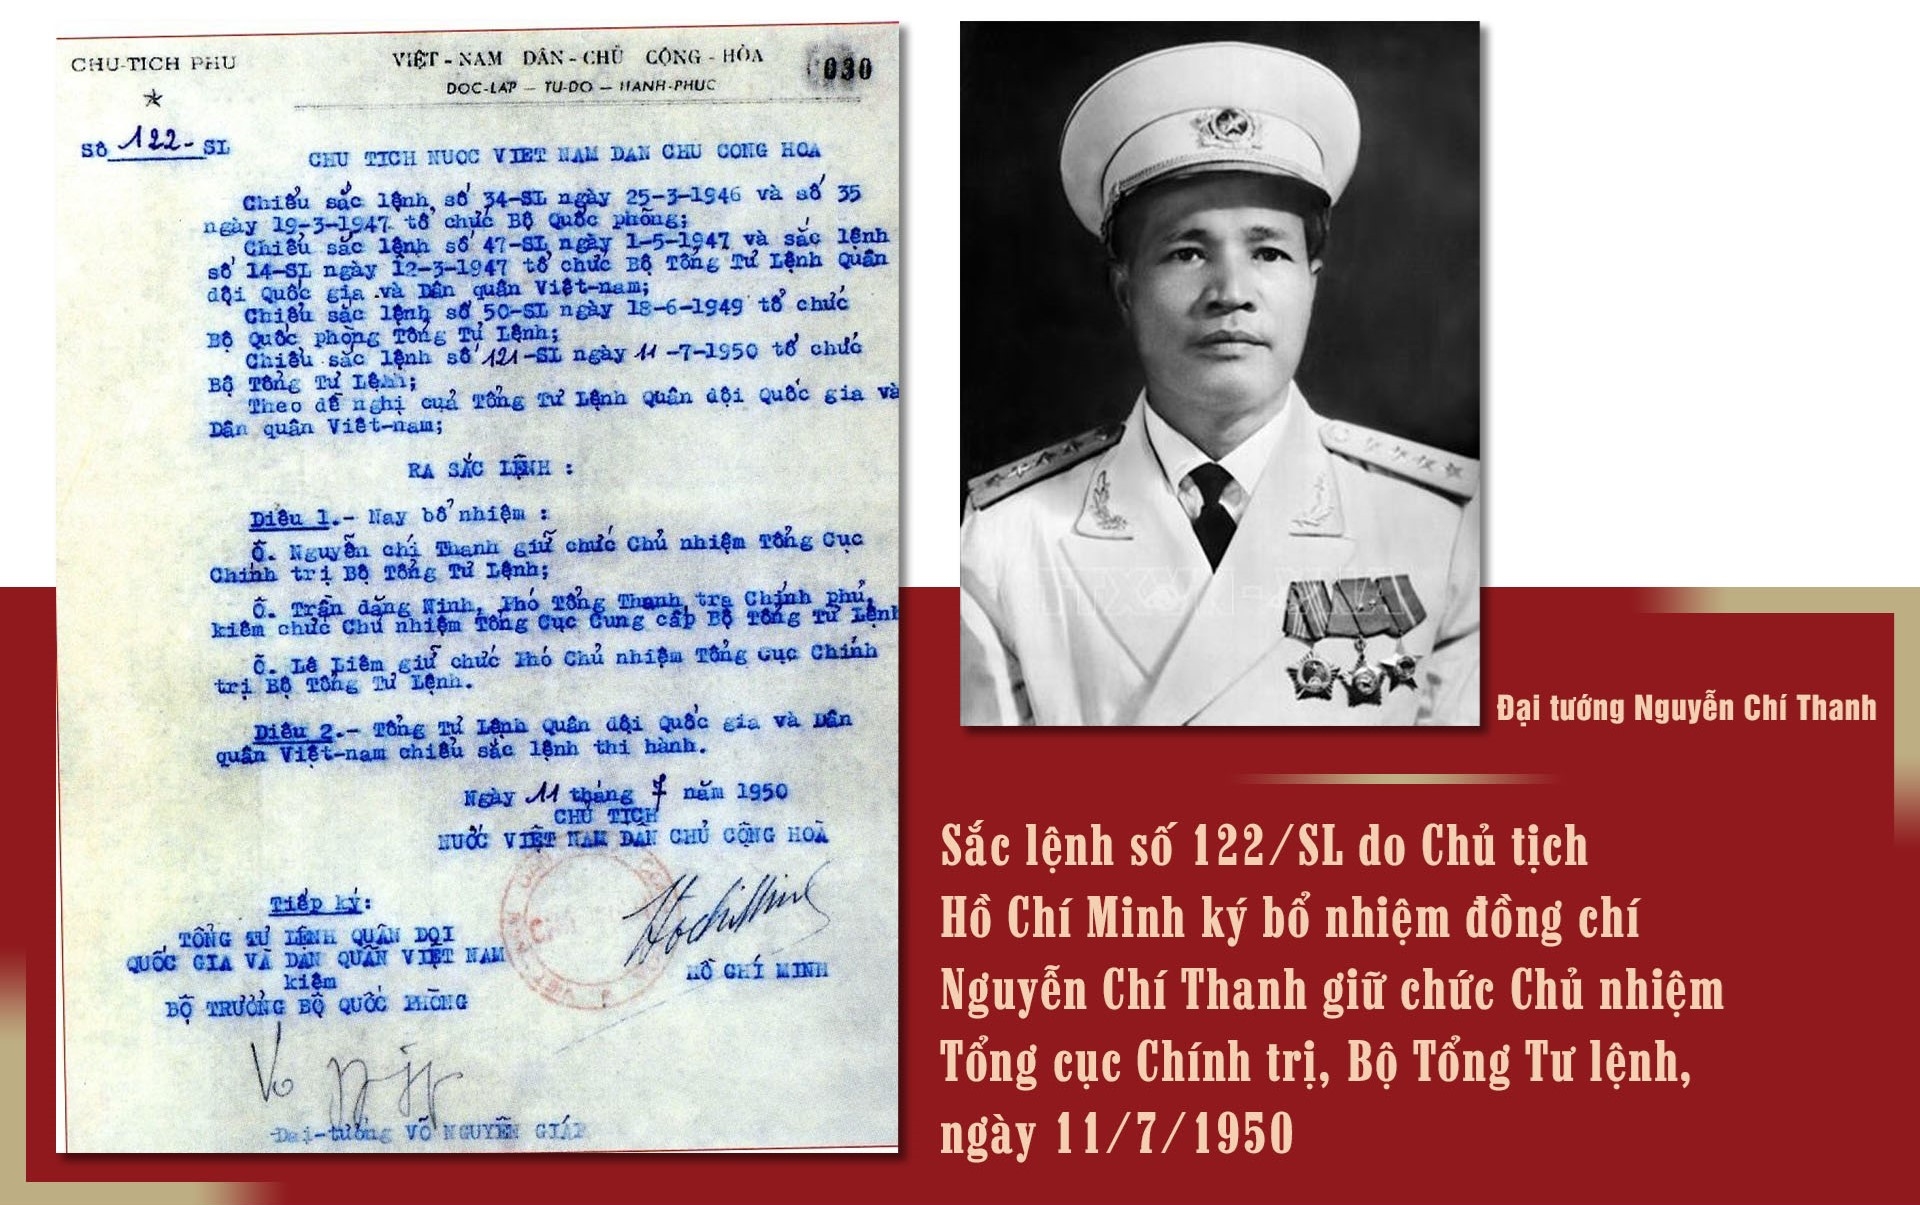 CHU-TICH PHU
VIỆT - NAM DÂN - CHỦ CỘNG - HÒA
DOC-LAP — TU-DO — HANH-PHUC
030
Số 122- SL
CHU TICH NUOC VIET NAM DAN CHU CONG HOA
Chiểu sắc lệnh, số 34-SL ngày 25-3-1946 và số 35
ngày 19-3-1947 tổ chức Bộ Quốc phòng;
Chiểu sắc lệnh số 47-SL ngày 1-5-1947 và sắc lệnh
số 14-SL ngày 12-3-1947 tổ chức Bộ Tổng Tư Lệnh Quân
đội Quốc gia và Dân quân Việt-nam;
Chiểu sắc lệnh số 50-SL ngày 18-6-1949 tổ chức
Bộ Quốc phòng Tổng Tư Lệnh;
Chiểu sắc lệnh số 121-SL ngày 11-7-1950 tổ chức
Bộ Tổng Tư Lệnh;
Theo đề nghị của Tổng Tư Lệnh Quân đội Quốc gia và
Dân quân Việt-nam;
RA SẮC LỆNH :
Diều 1.- Nay bổ nhiệm :
Ô. Nguyễn chí Thanh giữ chức Chủ nhiệm Tổng Cục
Chính trị Bộ Tổng Tư Lệnh;
Ô. Trần đăng Ninh, Phó Tổng Thanh tra Chính phủ,
kiêm chức Chủ nhiệm Tổng Cục Cung cấp Bộ Tổng Tư Lệnh
Ô. Lê Liêm giữ chức Phó Chủ nhiệm Tổng Cục Chính
trị Bộ Tổng Tư Lệnh.
Diều 2.- Tổng Tư Lệnh Quân đội Quốc gia và Dân
quân Việt-nam chiểu sắc lệnh thi hành.
Ngày 11 tháng 7 năm 1950
CHỦ TỊCH
NƯỚC VIỆT NAM DÂN CHỦ CỘNG HOÀ
HỒ CHÍ MINH
Tiếp ký:
TỔNG TƯ LỆNH QUÂN DỌI
QUỐC GIA VÀ DÂN QUÂN VIỆT NAM
kiêm
BỘ TRƯỞNG BỘ QUỐC PHÒNG
Đại-tướng VÕ NGUYÊN GIÁP
Đại tướng Nguyễn Chí Thanh
Sắc lệnh số 122/SL do Chủ tịch
Hồ Chí Minh ký bổ nhiệm đồng chí
Nguyễn Chí Thanh giữ chức Chủ nhiệm
Tổng cục Chính trị, Bộ Tổng Tư lệnh,
ngày 11/7/1950